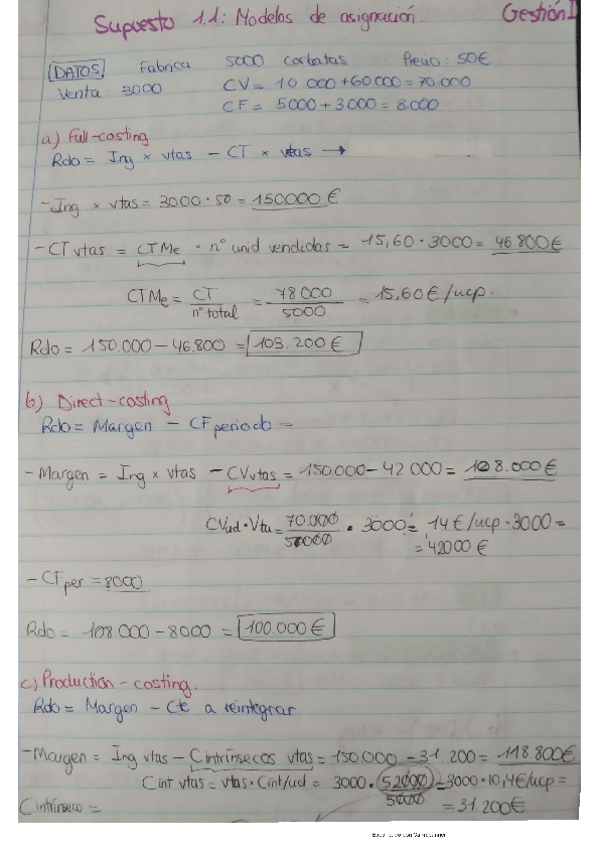 Supuesto 1.1: Modelos de asignación. Gestión I
DATOS Fabrica 5000 corbatas Precio: 50€
Venta: 3000 CV = 10 000 + 60.000 = 70.000
CF = 5000 + 3000 = 8.000
a) Full-costing
Rdo = Ing x vtas - CT x vtas →
- Ing x vtas = 3000 · 50 = 150000 €
- CT vtas = CTMe · nº unid vendidas = 15,60 · 3000 = 46.800€
CTMe = CT / nº total = 78 000 / 5000 = 15,60€/ucp.
Rdo = 150.000 - 46.800 = 103.200€
b) Direct-costing
Rdo = Margen - CF periodo =
- Margen = Ing x vtas - CVvtas = 150.000 - 42 000 = 108.000€
CVud · Vta = 70.000 / 5000 · 3000 = 14€/ucp · 3000 =
= 42000 €
- CF per = 8000
Rdo = 108 000 - 8000 = 100.000€
c) Production-costing.
Rdo = Margen - Cte a reintegrar
- Margen = Ing vtas - Cintrínsecos vtas = 150.000 - 31.200 = 118.800€
Cint vtas = vtas · Cint/ud = 3000 · (52000) / 5000 = 3000 · 10,4€/ucp =
Cintrínseco = = 31.200€